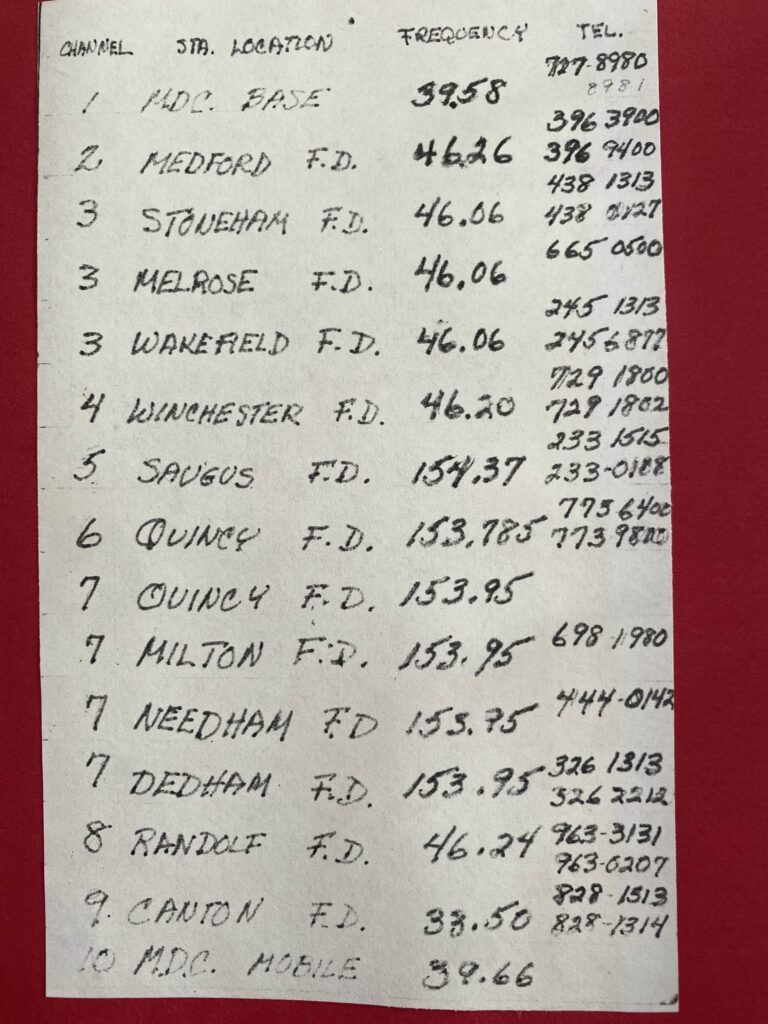 CHANNEL STA. LOCATION FREQUENCY TEL.
727-8980
1 M.D.C. BASE 39.58 8981
396 3900
2 MEDFORD F.D. 46.26 396 9400
438 1313
3 STONEHAM F.D. 46.06 438 0127
665 0500
3 MELROSE F.D. 46.06
245 1313
3 WAKEFIELD F.D. 46.06 245 6877
729 1800
4 WINCHESTER F.D. 46.20 729 1802
233 1515
5 SAUGUS F.D. 154.37 233-0188
773 6400
6 QUINCY F.D. 153.785 773 9800
7 QUINCY F.D. 153.95
7 MILTON F.D. 153.95 698-1980
7 NEEDHAM F.D 153.95 444-0142
326 1313
7 DEDHAM F.D. 153.95 326 2212
8 RANDOLF F.D. 46.24 963-3131
963-0207
828-1313
9. CANTON F.D. 33.50 828-1314
10 M.D.C. MOBILE 39.66